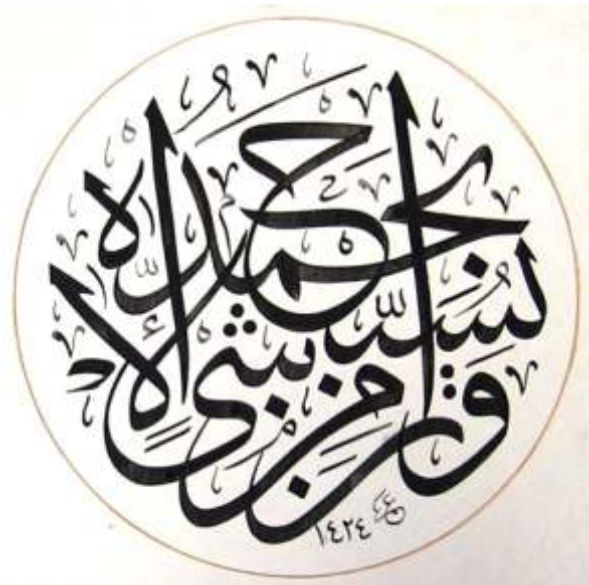 وَإِن مِّن شَيْءٍ إِلَّا يُسَبِّحُ بِحَمْدِهِ
١٤٢٤